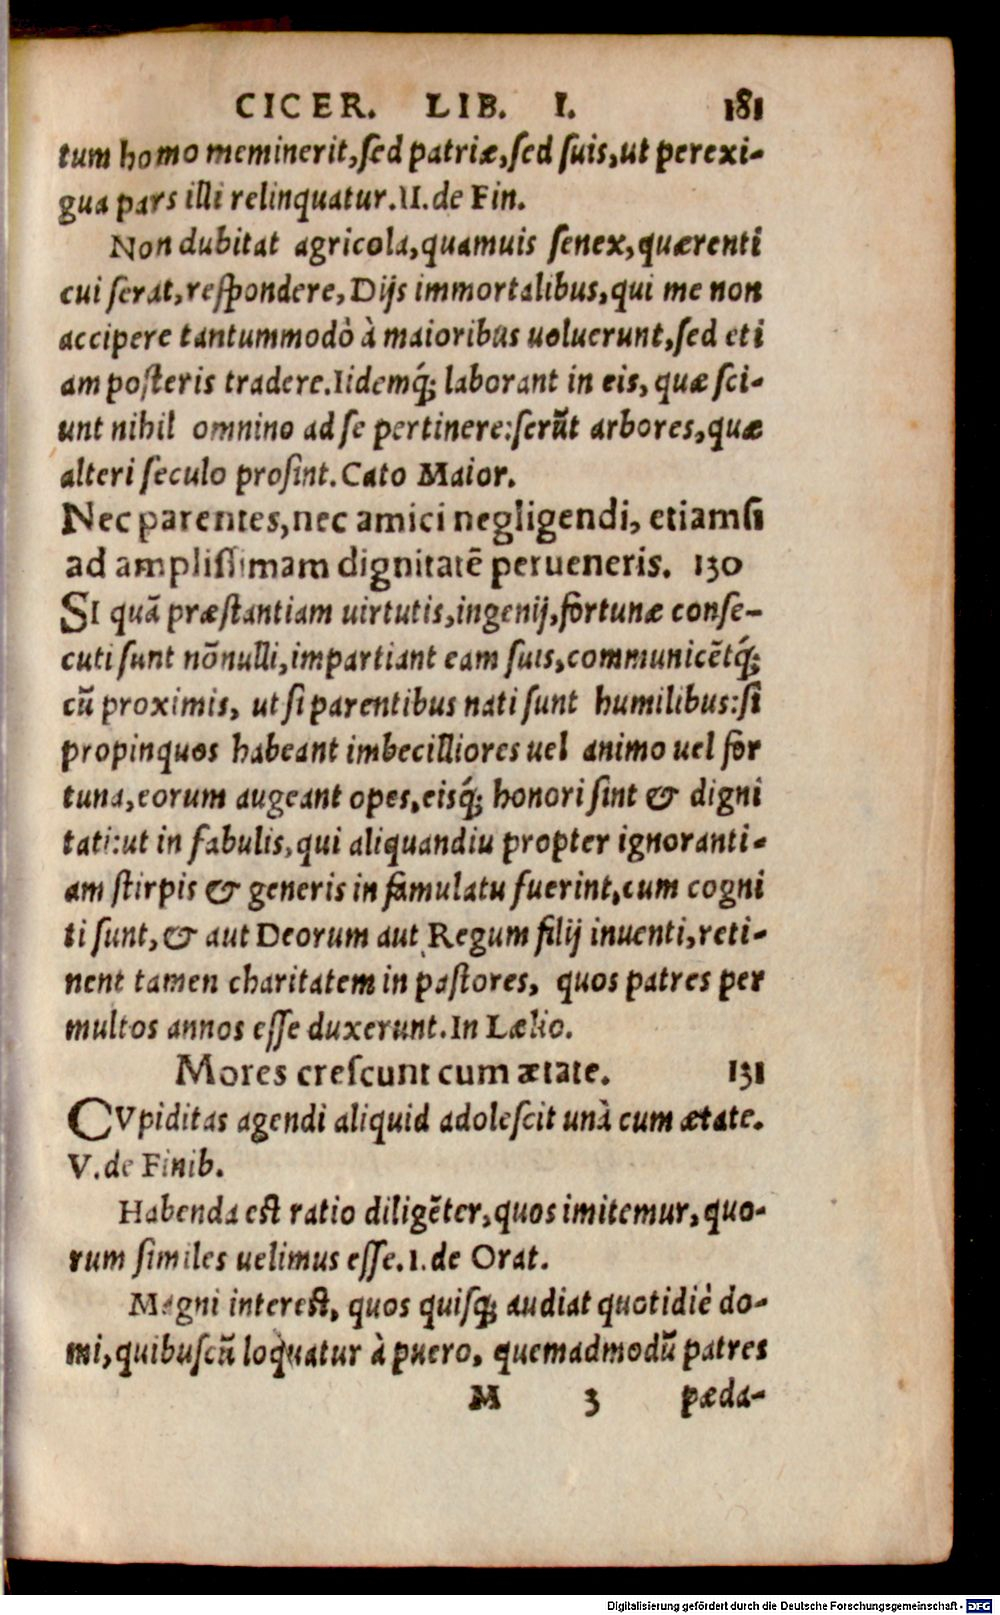 CICER. LIB. I. 181
tum homo meminerit, sed patriæ, sed suis, ut perexi-
gua pars illi relinquatur. II. de Fin.
Non dubitat agricola, quamuis senex, quærenti
cui serat, respondere, Dijs immortalibus, qui me non
accipere tantummodò à maioribus uoluerunt, sed eti
am posteris tradere. Iidemq́; laborant in eis, quæ sci-
unt nihil omnino ad se pertinere: serũt arbores, quæ
alteri seculo prosint. Cato Maior.
Nec parentes, nec amici negligendi, etiamsi
ad amplissimam dignitatẽ perueneris. 130
SI quã præstantiam uirtutis, ingenij, fortunæ conse-
cuti sunt nõnulli, impartiant eam suis, communicẽtq́;
cũ proximis, ut si parentibus nati sunt humilibus: si
propinquos habeant imbecilliores uel animo uel for
tuna, eorum augeant opes, eisq́; honori sint & digni
tati: ut in fabulis, qui aliquandiu propter ignoranti-
am stirpis & generis in famulatu fuerint, cum cogni
ti sunt, & aut Deorum aut Regum filij inuenti, reti-
nent tamen charitatem in pastores, quos patres per
multos annos esse duxerunt. In Lælio.
Mores crescunt cum ætate. 131
CVpiditas agendi aliquid adolescit unà cum ætate.
V. de Finib.
Habenda est ratio diligẽter, quos imitemur, quo-
rum similes uelimus esse. 1. de Orat.
Magni interest, quos quisq; audiat quotidiè do-
mi, quibuscũ loquatur à puero, quemadmodũ patres
M 3 pæda-
Digitalisierung gefördert durch die Deutsche Forschungsgemeinschaft - DFG